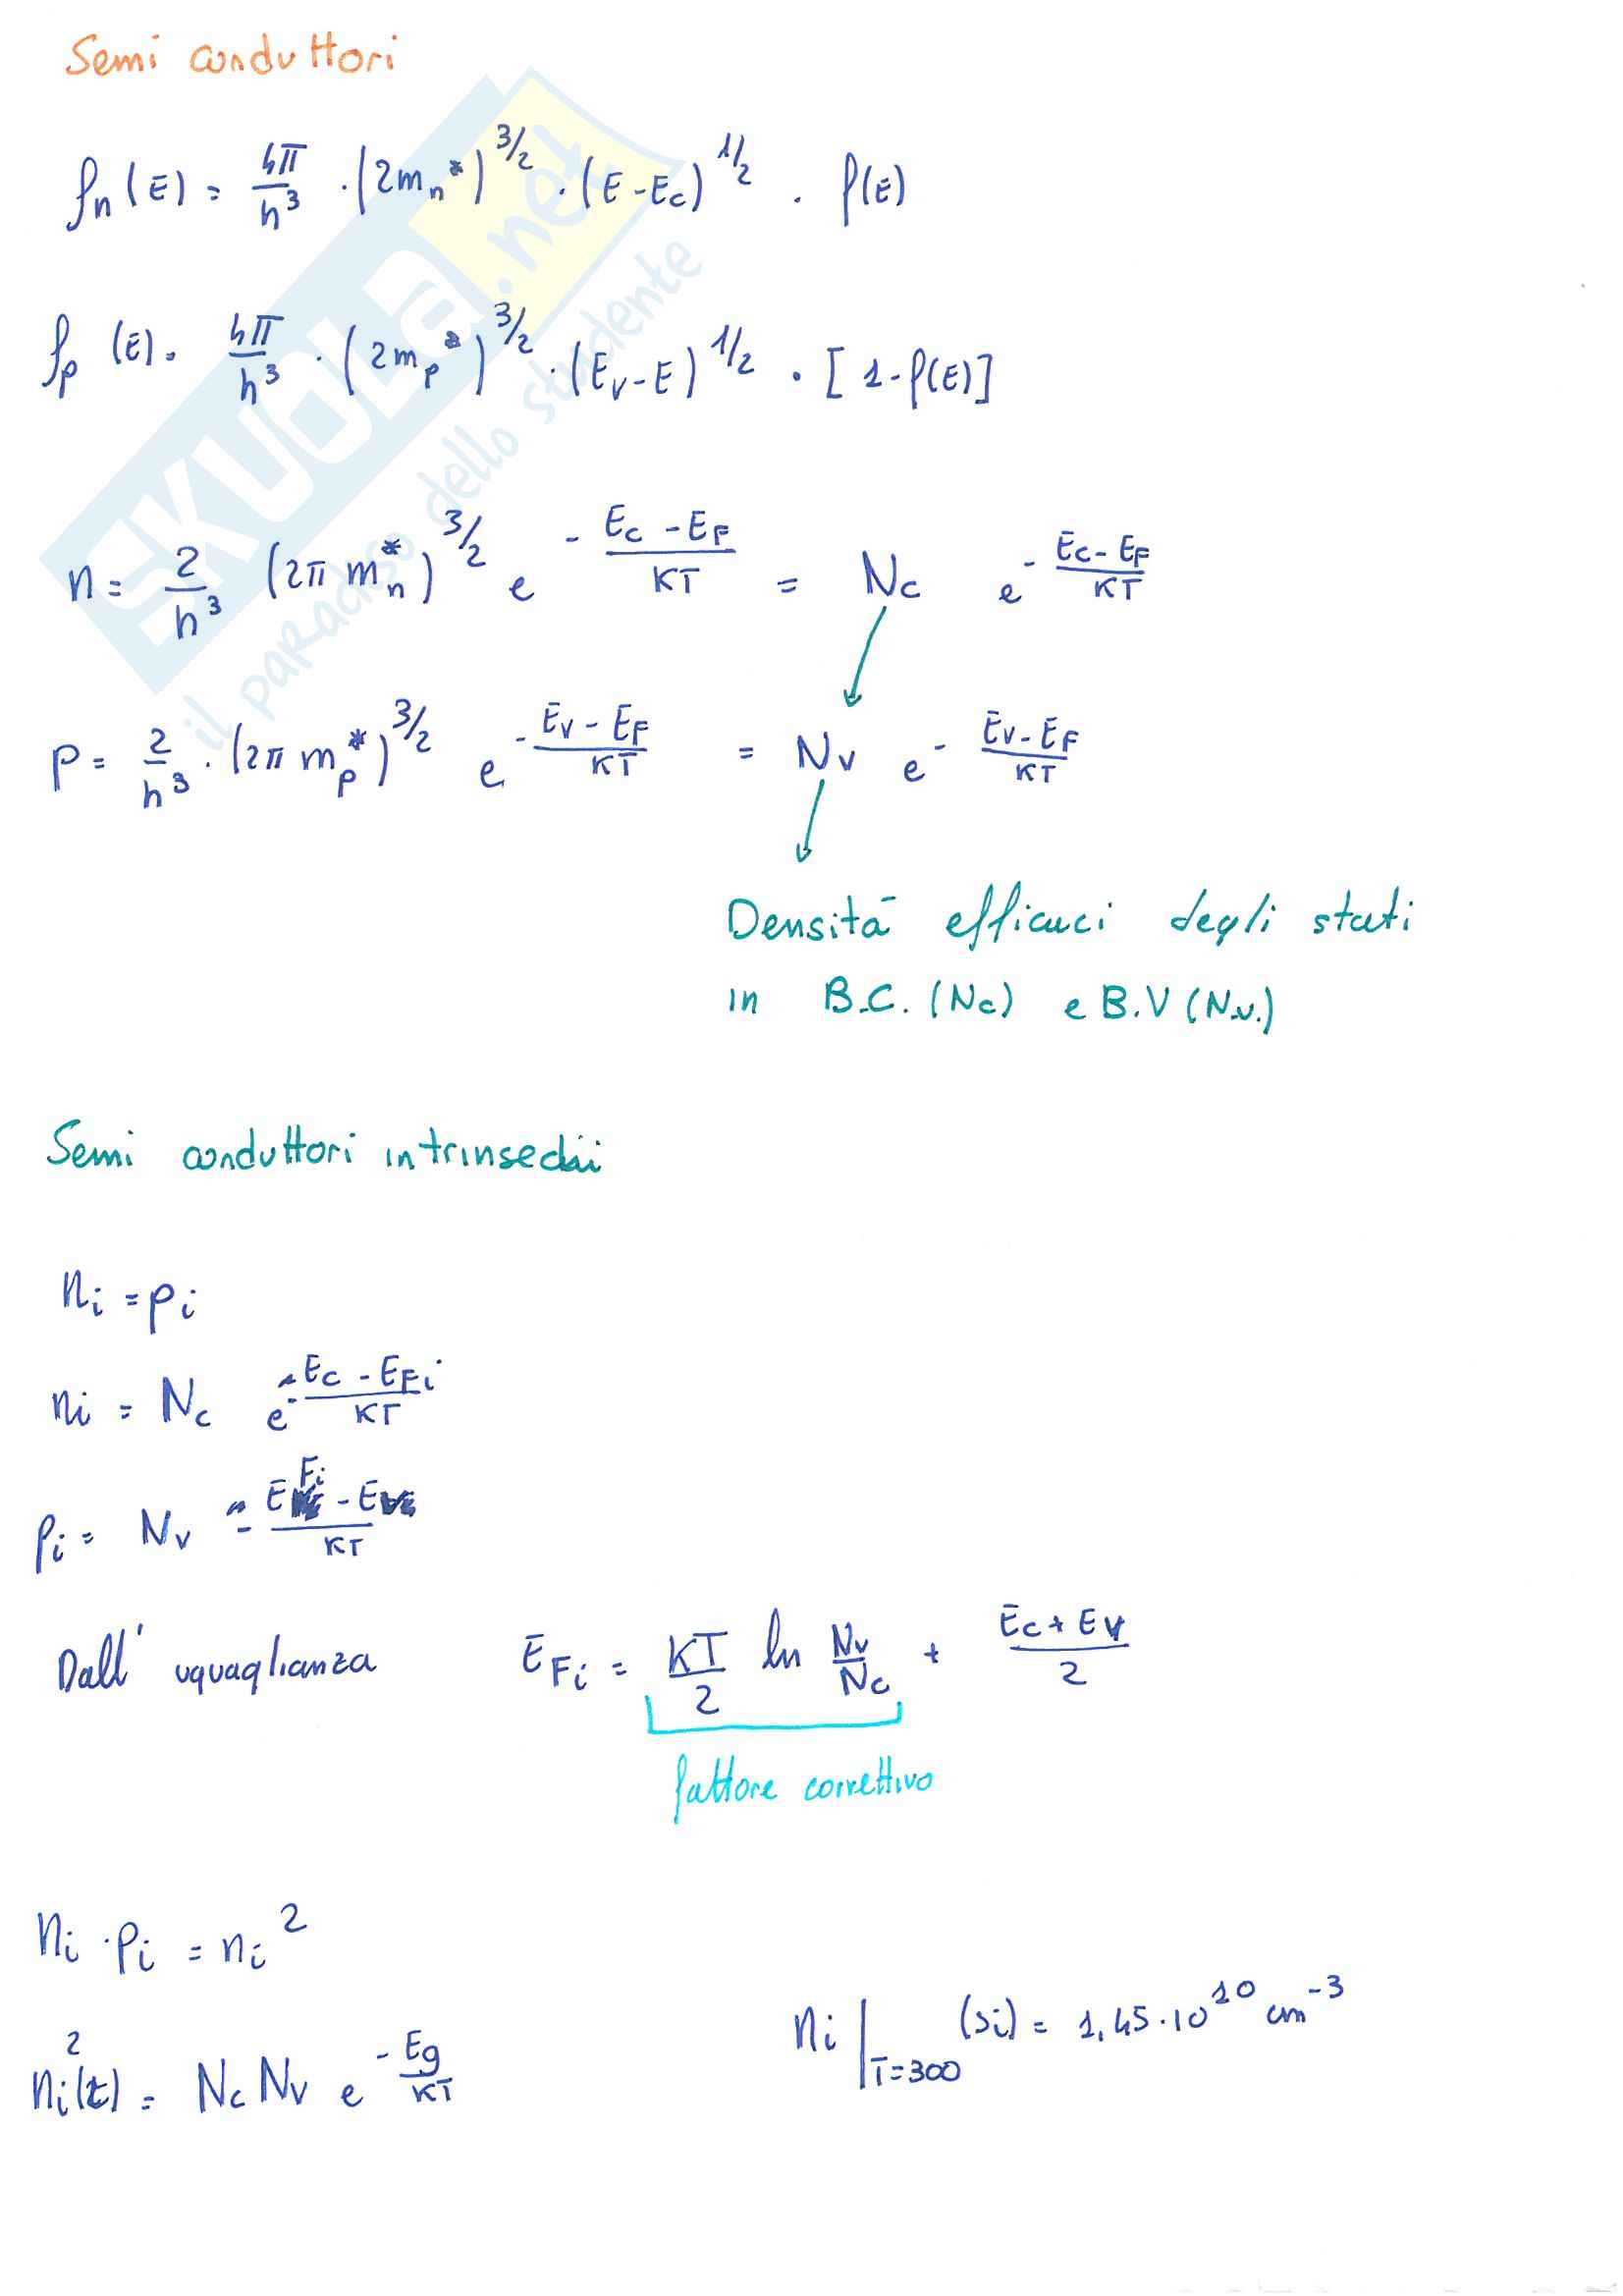 Semi conduttori
fn (E) = 4π/h³ · (2mn*)^3/2 · (E-Ec)^1/2 · f(E)
fp (E) = 4π/h³ · (2mp*)^3/2 · (Ev-E)^1/2 · [1-f(E)]
n = 2/h³ (2π mn*)^3/2 e^-(Ec-EF)/KT = Nc e^-(Ec-EF)/KT
p = 2/h³ · (2π mp*)^3/2 e^-(Ev-EF)/KT = Nv e^-(Ev-EF)/KT
Densità efficaci degli stati
in B.C. (Nc) e B.V (N.v.)
Semi conduttori intrinsechi
ni = pi
ni = Nc e^-(Ec-EFi)/KT
pi = Nv -(EFi-Ev)/KT
Dall' uguaglianza EFi = KT/2 ln Nv/Nc + (Ec+Ev)/2
fattore correttivo
ni · pi = ni²
ni|T=300 (Si) = 1,45·10^10 cm^-3
ni²(t) = Nc Nv e^-Eg/KT
SKUOLa.net
il paradiso dello studente